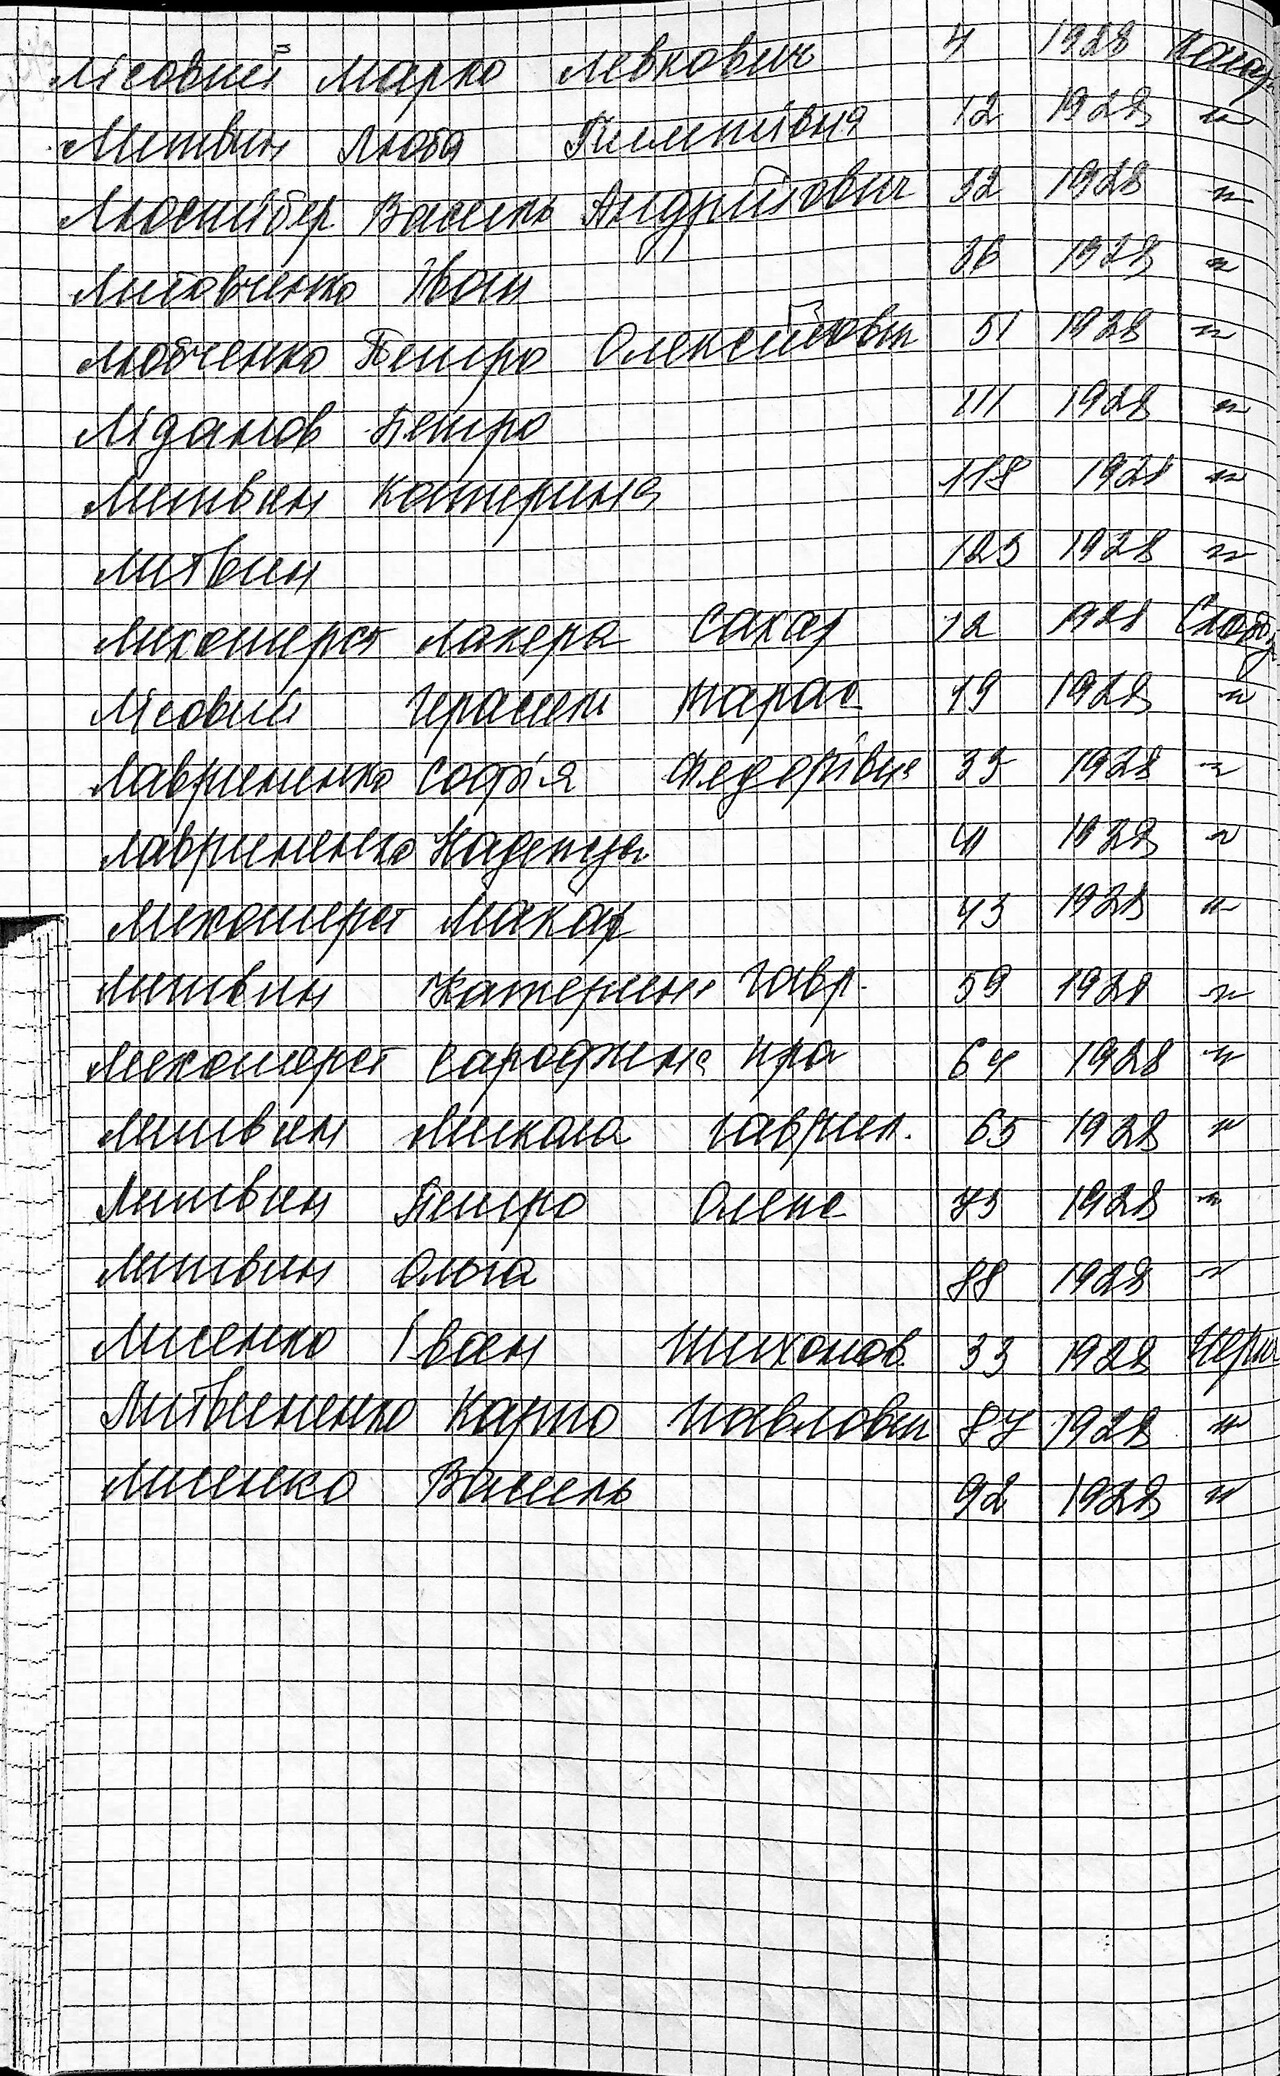 Лісовий Марко Левкович 4 1928
Литвин Люба Пилипівна 12 1928 "
Василь Андрійович 32 1928 "
Литовченко Іван 36 1928 "
Любченко Петро Олексійович 51 1928 "
Ліданов Петро 111 1928 "
Литвин Катерина 118 1928 "
Литвин 123 1928 "
Лихошерст Лакера Сахар 12 1928 Слобо
Лісовий Герасим Тарас 19 1928 "
Лавриненко Софія Федорівна 35 1928 "
Лавриненко Надежда 41 1928 "
Лихошерст Макар 43 1928 "
Литвин Катерина Гавр. 59 1928 "
Лихошерст 64 1928 "
Литвин Микола Гаврил. 65 1928 "
Литвин Петро Олекс 73 1928 "
Литвин Ольга 88 1928 "
Лисенко Іван Тихонов. 33 1928
Литвиненко Карпо Павлович 87 1928 "
Лисенко Василь 92 1928 "